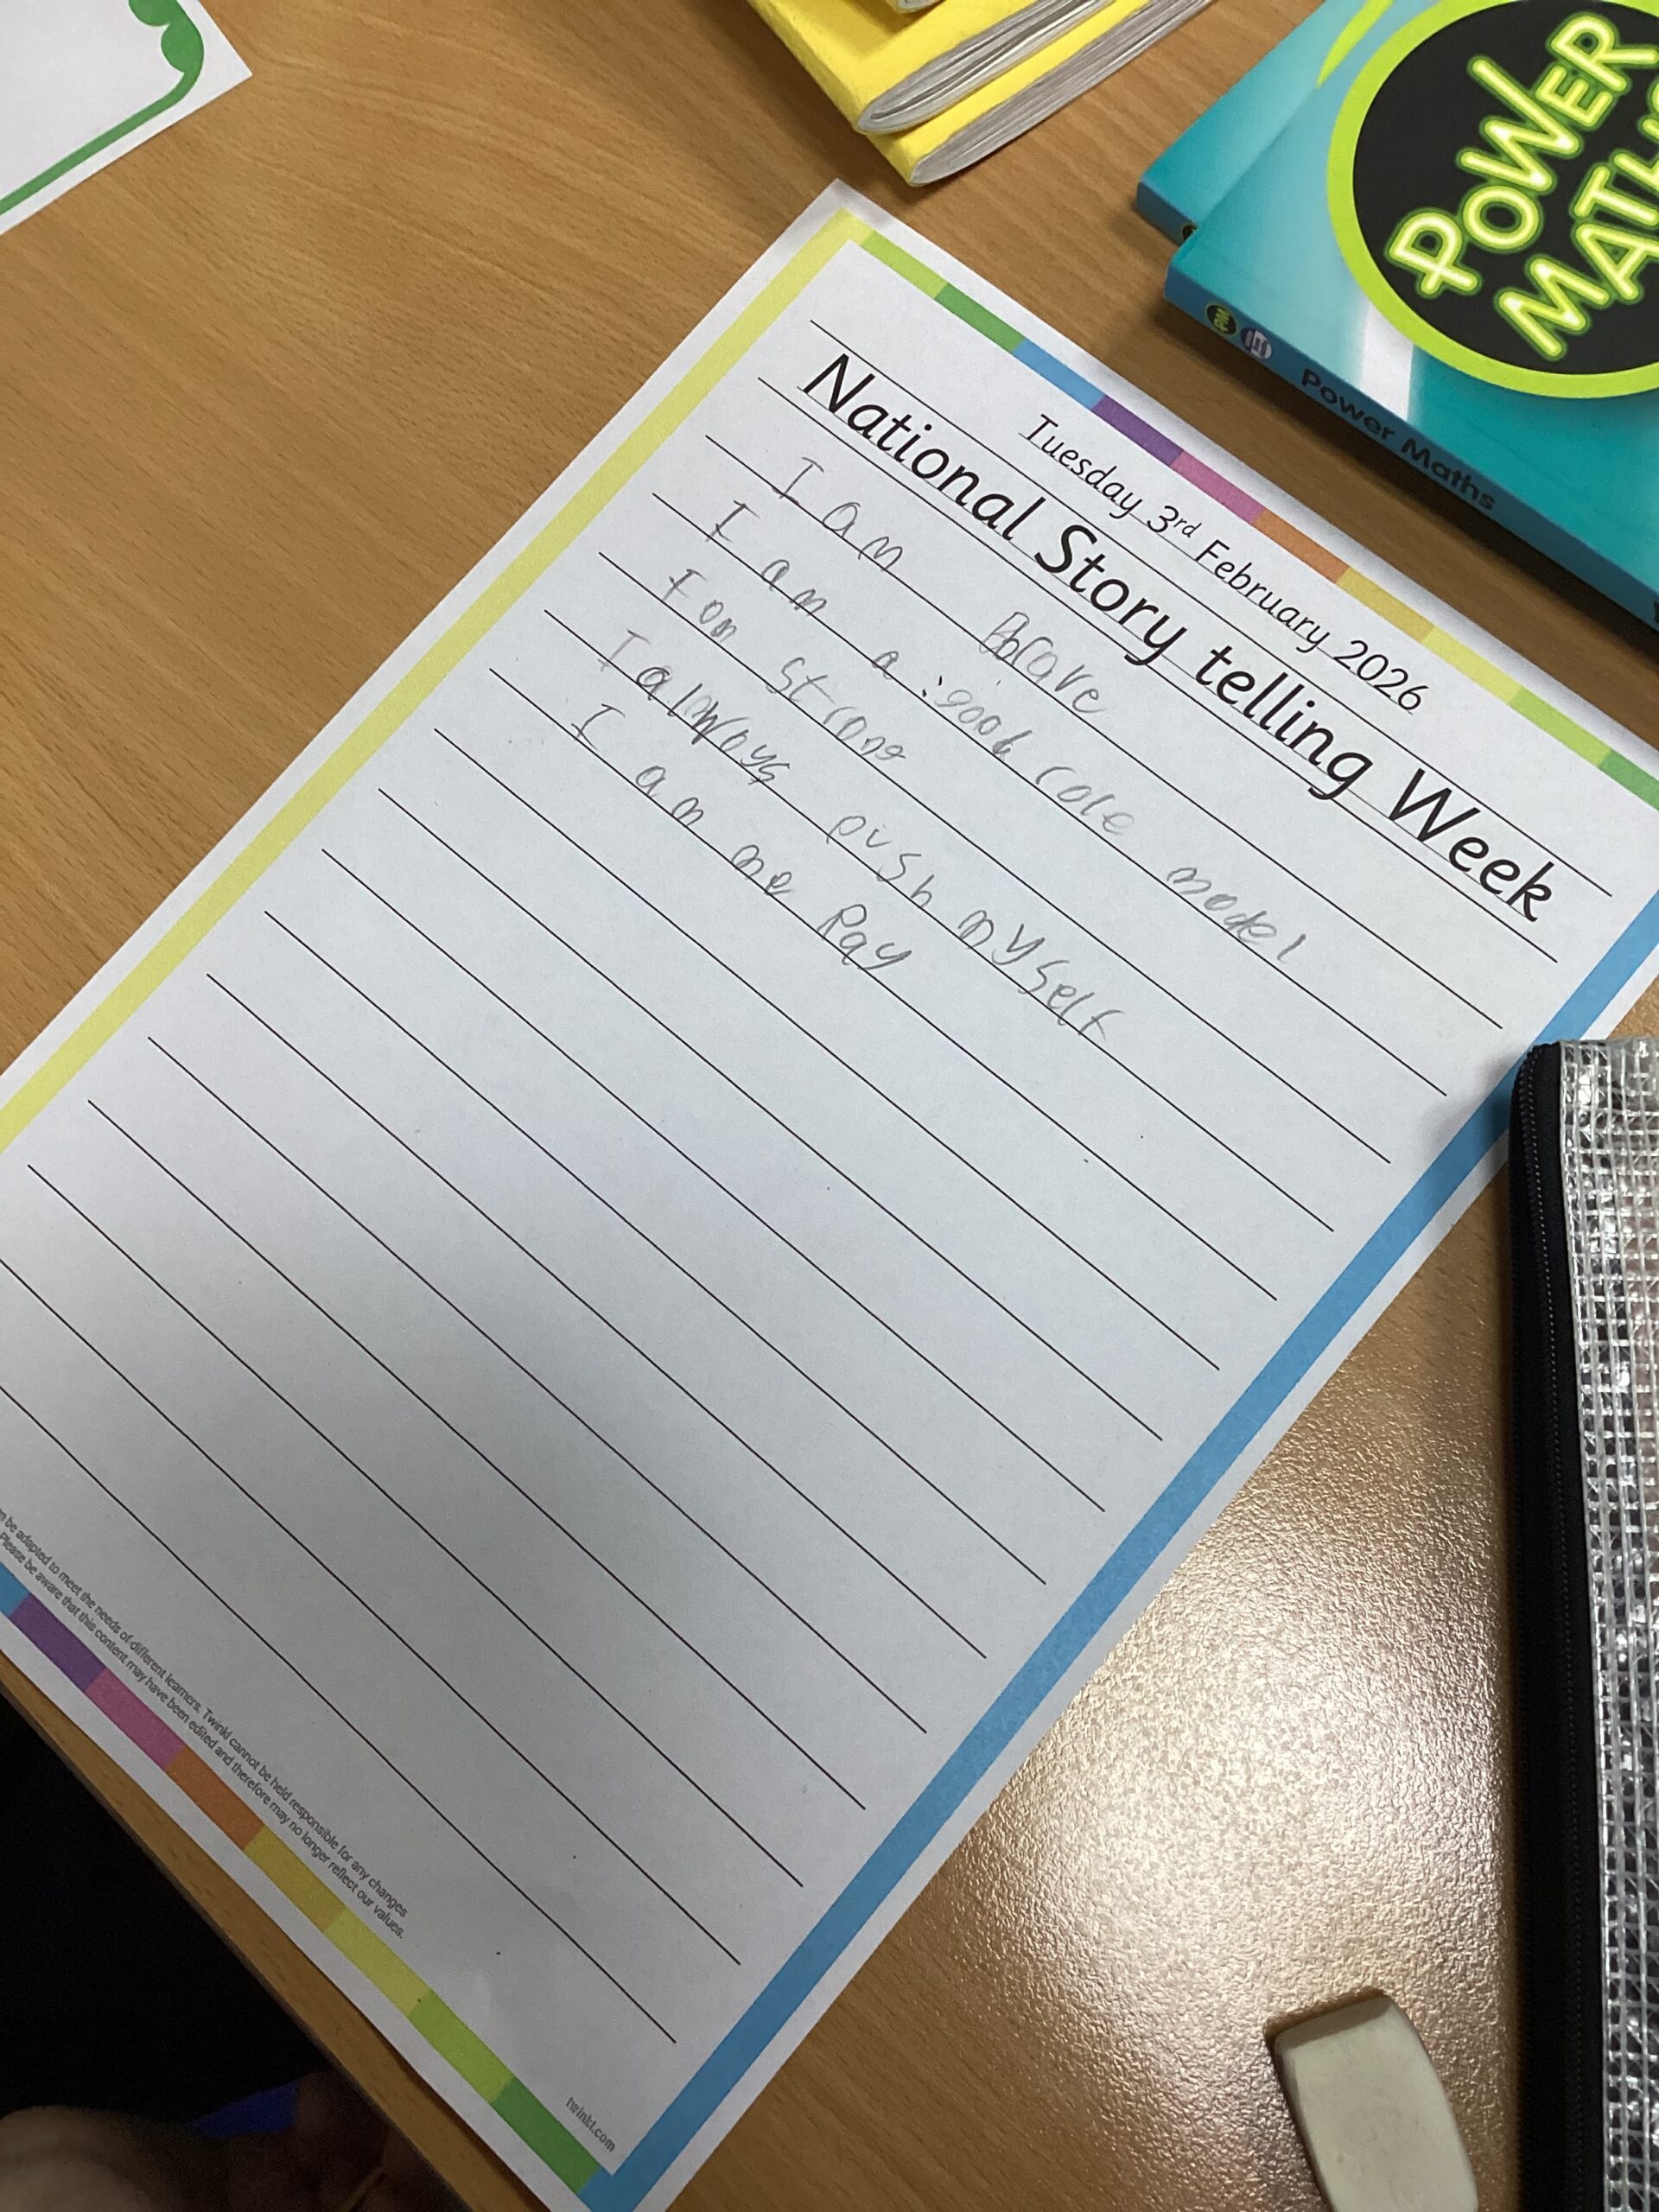 POWER
MATHS
Power Maths
Tuesday 3rd February 2026
National Story telling Week
I am brave
I am a good role model
I am strong
I always push myself
I am me Ray
n be adapted to meet the needs of different learners. Twinkl cannot be held responsible for any changes
Please be aware that this content may have been edited and therefore may no longer reflect our values.
twinkl.com